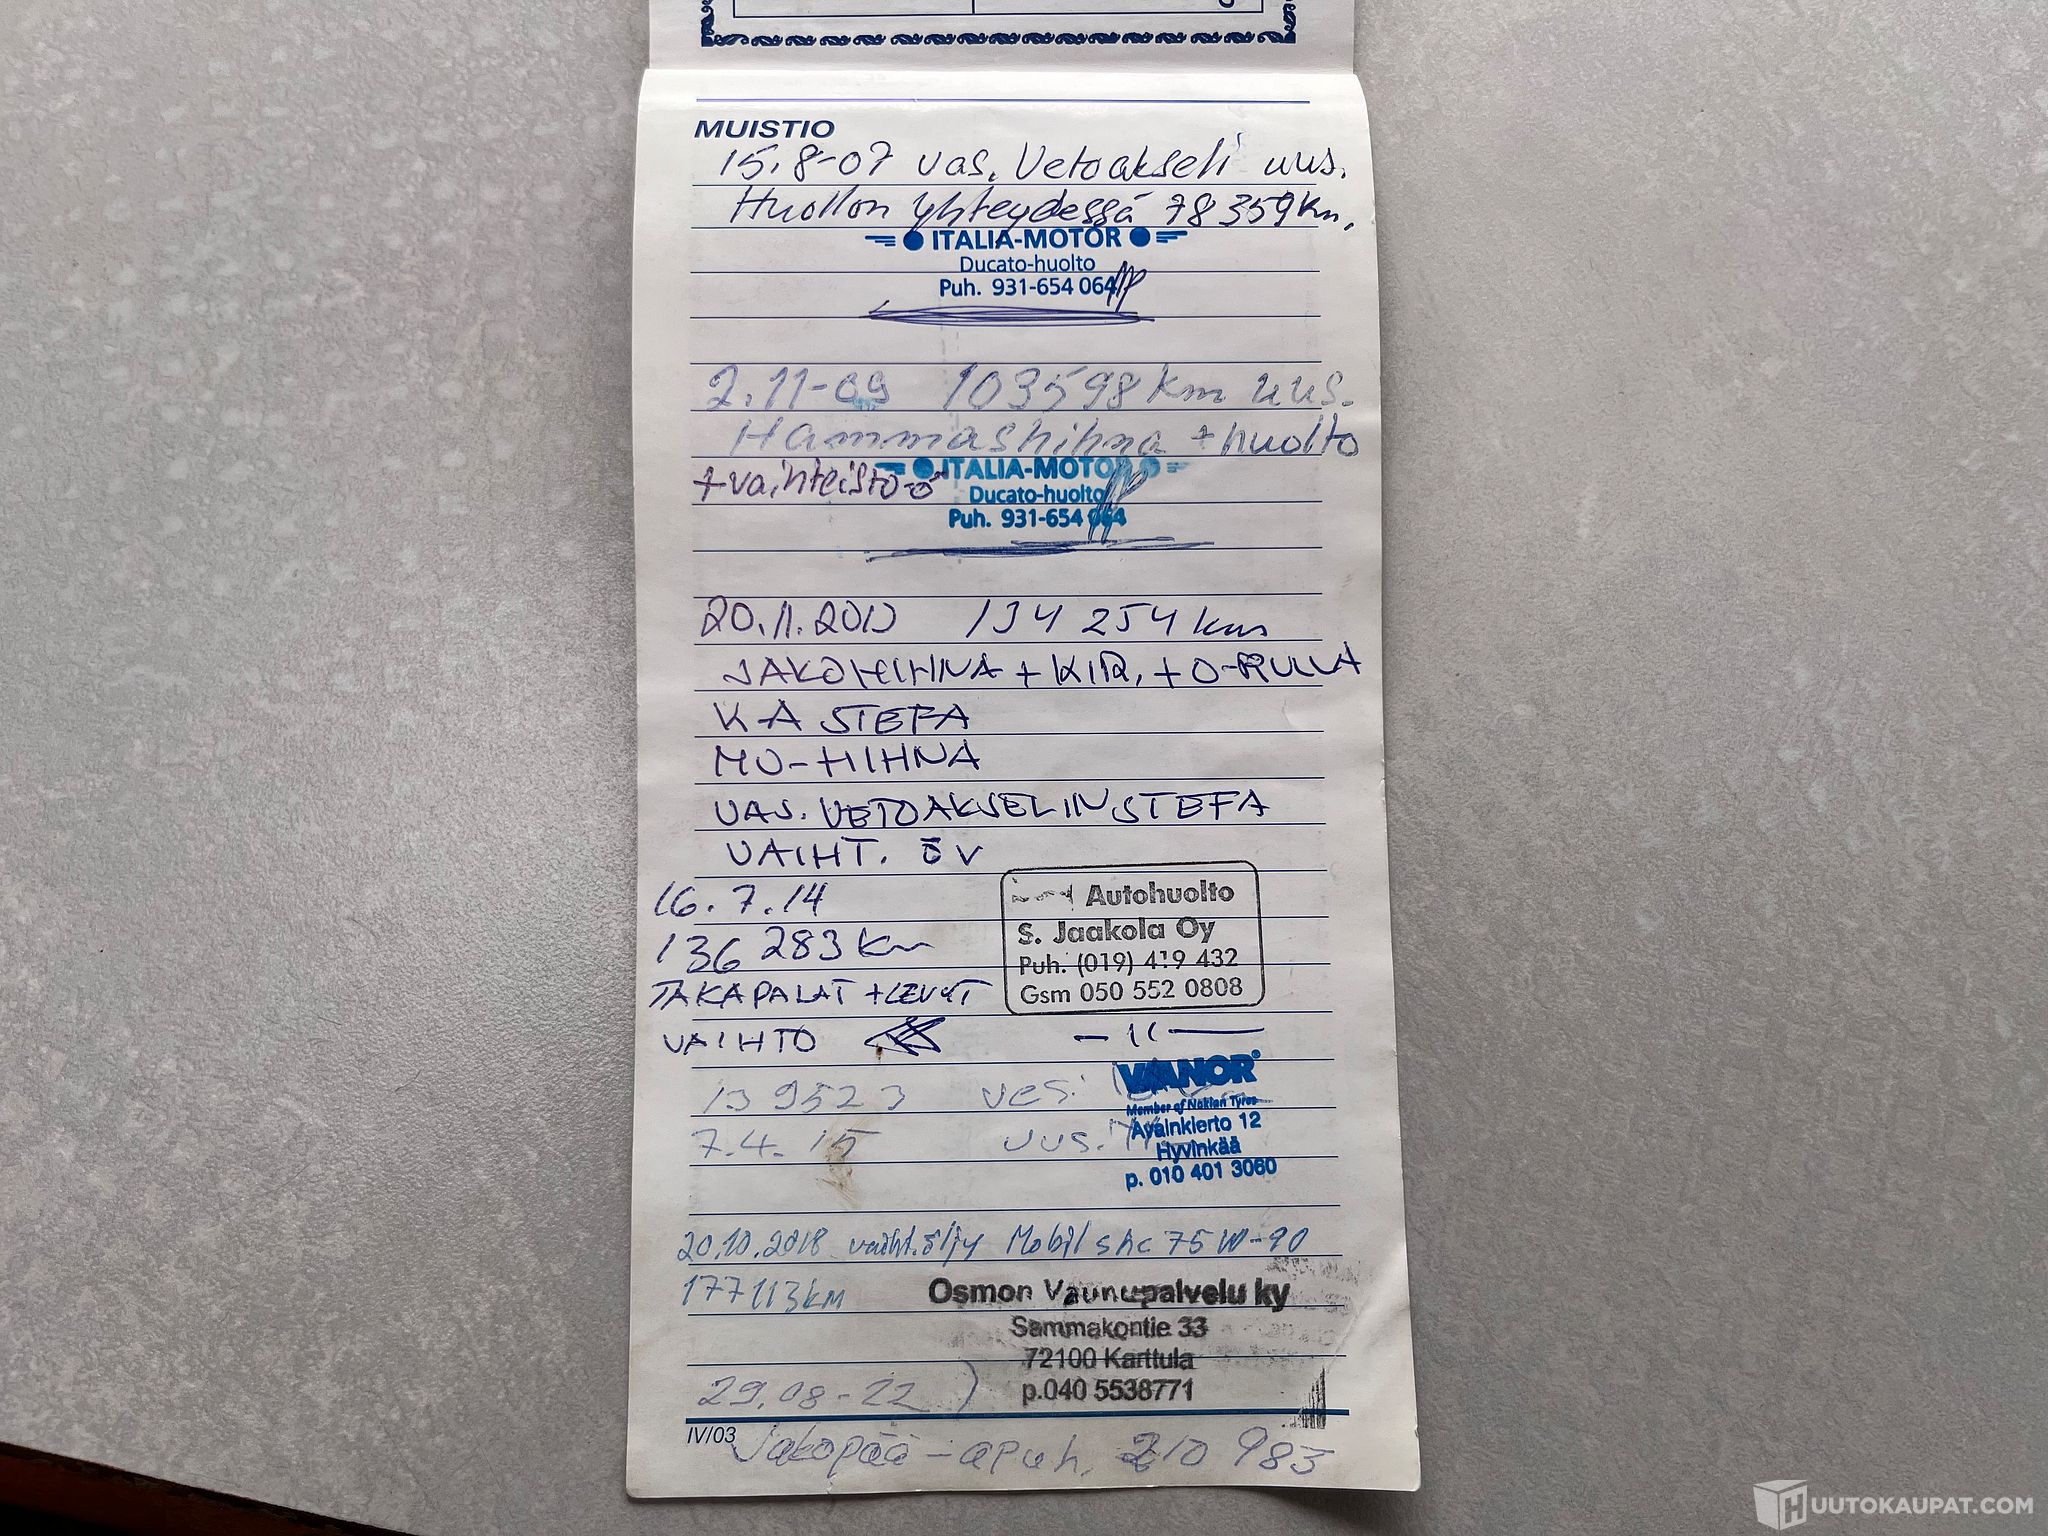 MUISTIO
15.8-07 vas. Vetoakseli uus.
Huollon yhteydessä 78359km.
ITALIA-MOTOR
Ducato-huolto
Puh. 931-654 064
2.11-09 103598km uus.
Hammashihna + huolto
+vaihteisto-ö
ITALIA-MOTOR
Ducato-huolto
Puh. 931-654 064
20.11.2013 134 254 km
JAKOHIHNA + KIR. + O-RULLA
KA STEFA
MU-HIHNA
VAS. VETOAKSELIN STEFA
VAIHT. ÖV
16.7.14
136 283 km
TAKAPALAT + LEVYT
VAIHTO
Autohuolto
S. Jaakola Oy
Puh. (019) 419 432
Gsm 050 552 0808
— 11 —
139523 ves.
7.4.15 uus.
VIANOR
Member of Nokian Tyres
Avainkierto 12
Hyvinkää
p. 010 401 3060
20.10.2018 vaiht.öljy Mobil shc 75W-90
177113km
Osmon Vaunupalvelu ky
Sammakontie 33
72100 Karttula
p.040 5538771
29.08-22
IV/03
Jakopää-apuh. 210 983
HUUTOKAUPAT.COM